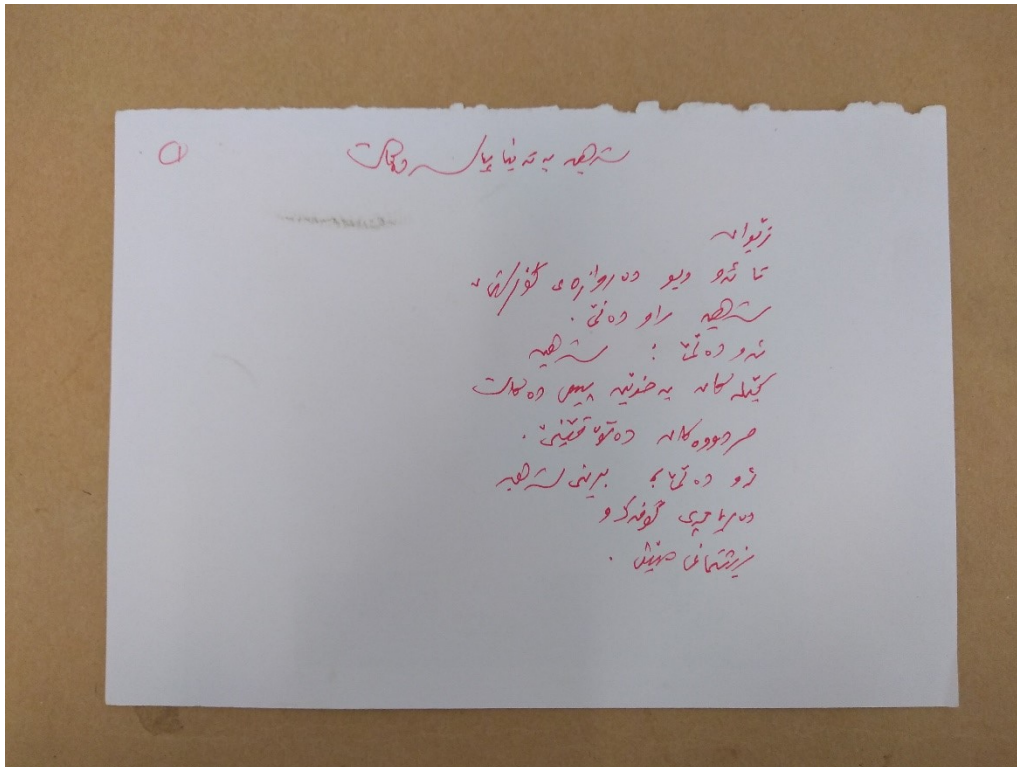 شەهید بە تەنیا پیاسە دەکات
١
ژێوان
تا ئەو دیو دەروازەی گۆڕستان
شەهید راو دەنێ.
ئەو دەڵێ: شەهید
کێلەکان بە خوێن پیس دەکات
مردووەکان دەتۆقێنێ.
ئەو دەڵێ: برینی شەهید
دەرمانی گۆڤەک و
نیشتمانی منیش.